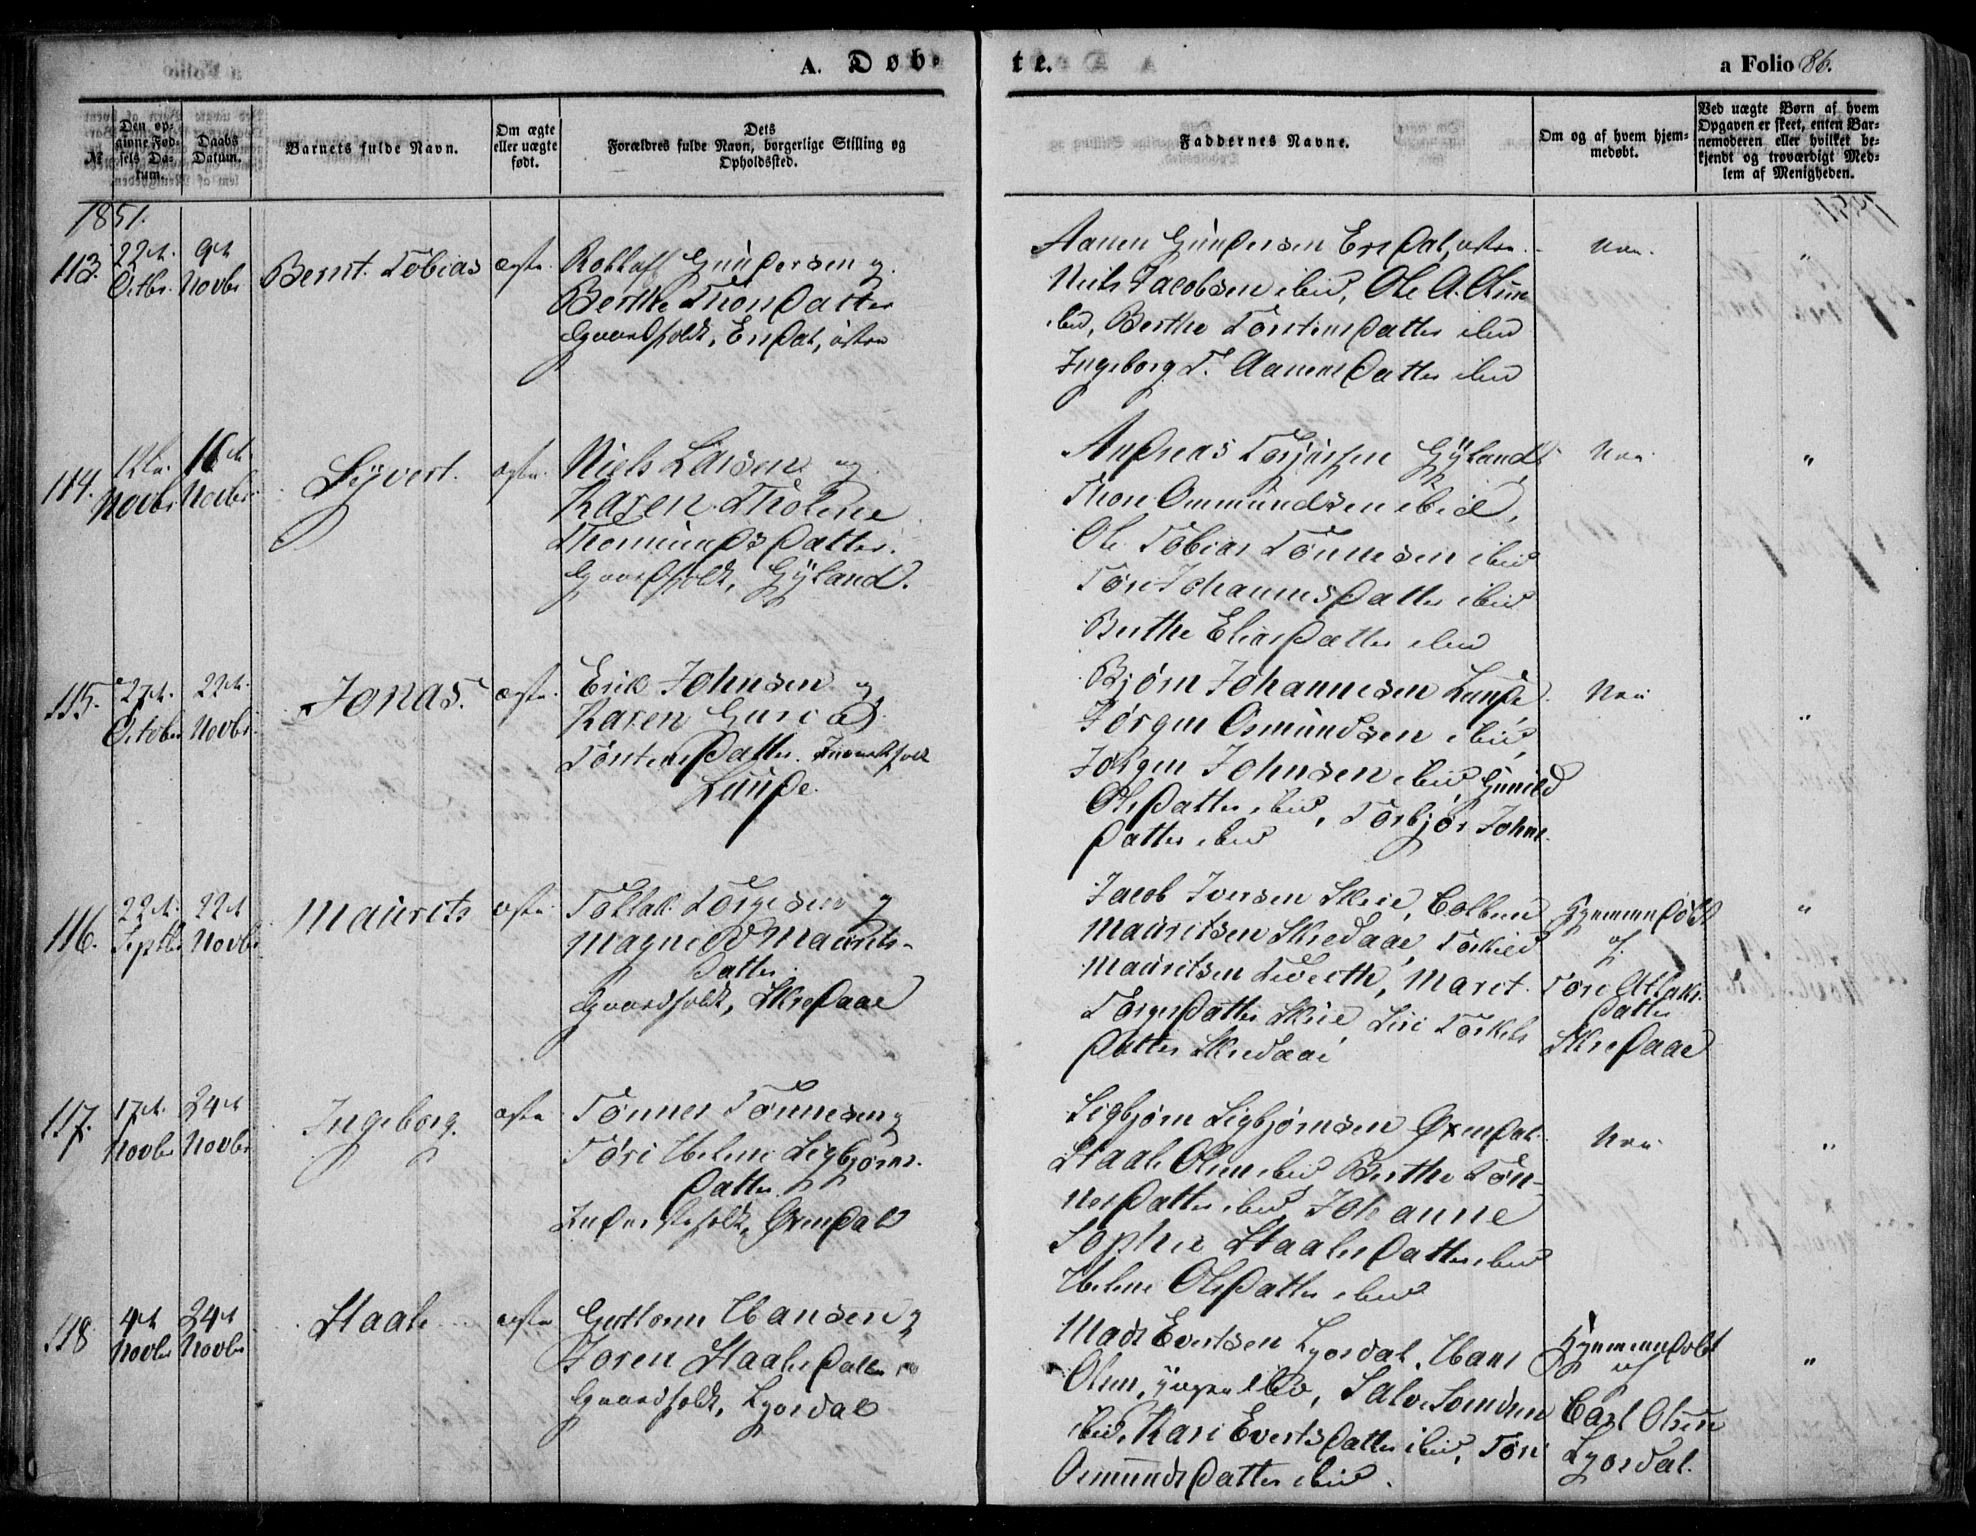 A. Døb-
te.
a Folio 86.
№
Den op-
givne Fød-
sels Da-
tum.
Daabs
Datum.
Barnets fulde Navn.
Om ægte
eller uægte
født.
Dets
Forældres fulde Navn, borgerlige Stilling og
Opholdssted.
Faddernes Navne.
Om og af hvem hjem-
medøbt.
Ved uægte Børn af hvem
Opgaven er skeet, enten Bar-
nemoderen eller hvilket be-
kjendt og troværdigt Med-
lem af Menigheden.
1851.
113.
22de
Octbr.
9de
Novbr
Bernt Tobias
ægte
Rolluff Gundersen og
Berthe Thorsdatter
Gaardfolk, Eresdal, østre
Aanen Gundersen Eresdal, østre
Niels Jacobsen ibid, Ole A. Olsen
ibid, Berthe Tøntensdatter ibid
Ingeborg T. Aanensdatter ibid
Nei
"
114.
12te
Novbr
16de
Novbr
Syvert.
ægte
Niels Larsen og
Karen Tholene
Thormundsdatter.
Gaardfolk, Gyland.
Andreas Torjusen Gyland,
Thore Ommundsen ibid,
Ole Tobias Tønnesen ibid
Tøri Johannesdatter ibid
Berthe Eliasdatter ibid
Nei
"
115.
27de
October
22de
Novbr.
Jonas.
ægte
Erik Johnsen og
Karen Guri
Tøntensdatter.
Lunde.
Bjørn Johannesen Lunde
Jørgen Osmundsen ibid,
Jørgen Johnsen ibid, Gunild
Olsdatter ibid, Torbjør Johns-
datter ibid
Nei
"
116.
22de
Septbr
22de
Novbr
Maurits
ægte
Tollak Torgesen og
Magnild Maurits-
datter.
Gaardfolk, Skredaae
Jacob Iversen Skrie, Colben
Mauritsen Skredaae, Torkild
Mauritsen Tveeth, Maret
Torgersdatter Skrie, Siri Torkels
datter Skredaae
Hjemmedøbt
af
Tore Atlaks
datter
Skredaae
"
117.
17de
Novbr
24de
Novbr
Ingeborg.
ægte
Tønnes Tønnesen og
Tøri Helene Sigbjørns-
datter
Inderstefolk, Øxendal
Sigbjørn Sigbjørnsen Øxendal
Staale Olsen ibid Berthe Tøn-
nesdatter ibid, Johanne
Sophie Staalesdatter ibid
Helene Olsdatter ibid
Nei
"
118
4de
Novbr
24de
Novbr
Staale
ægte
Guttorm Hansen og
Joren Staalesdatter
Gaardfolk, Lyordal
Mads Evertsen Lyordal, Hans
Olsen, yngre ibid, Salve Svendsen
ibid, Kari Evertsdatter ibid, Tøri
Osmundsdatter ibid.
Hjemmedøbt
af
Carl Olsen
Lyordal.
"